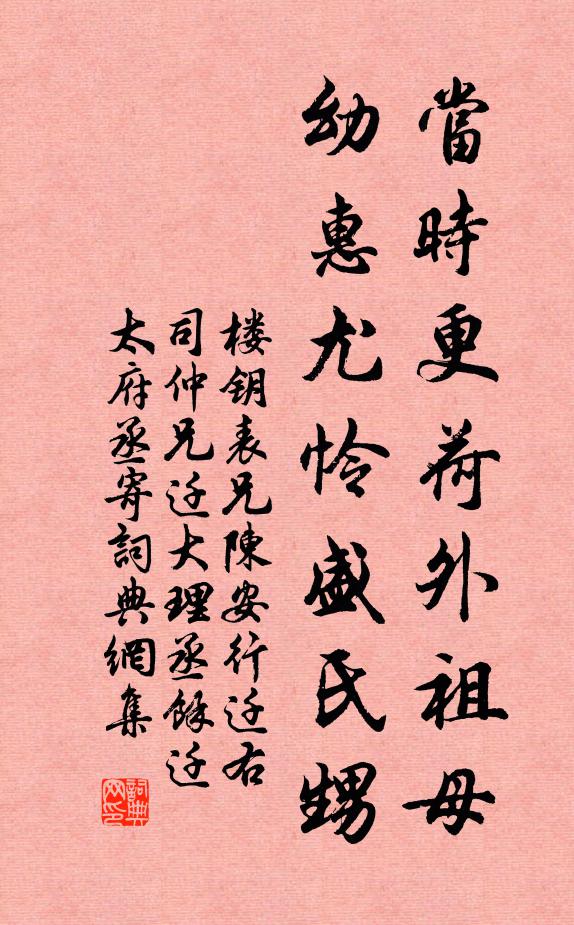 當時更荷外祖母
幼惠尤怜盛氏甥
楼钥表兄陳安行迁右
司仲兄迁大理丞餘迁
太府丞寄詞典網集
詞典
网印